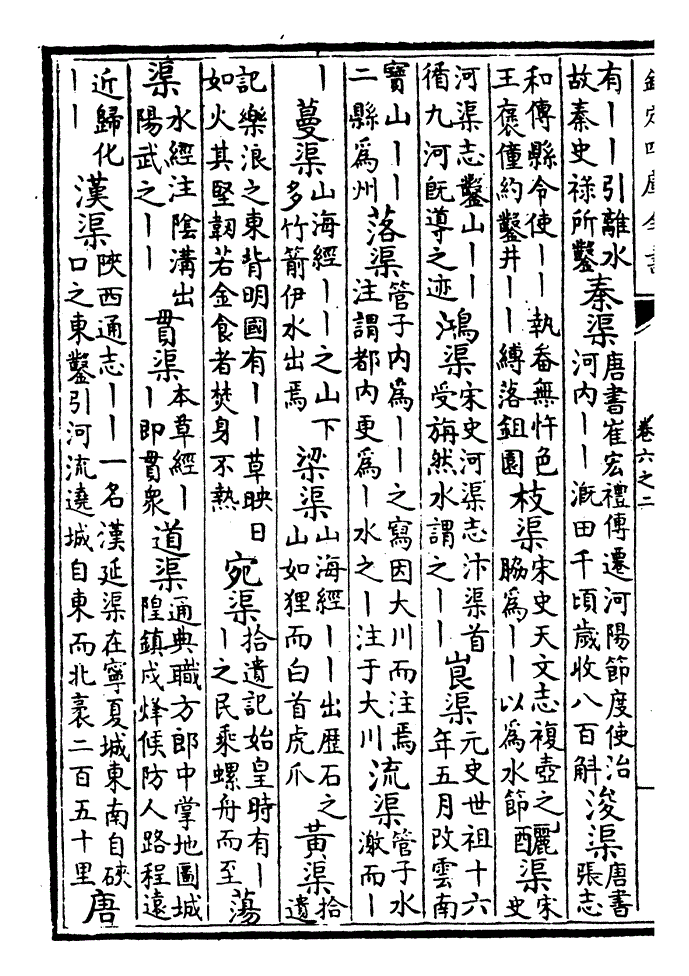 欽定四庫全書
卷六之二
有丨丨引離水
故秦史祿所鑿
秦渠
唐書崔宏禮傳遷河陽節度使治
河内丨丨溉田千頃歲收八百斛
浚渠
唐書
張志
和傳縣令使丨丨執畚無忤色
王褒僮約鑿井丨丨縛落鉏園
枝渠
宋史天文志複壺之
脇為丨丨以為水節
釃渠
宋
史
河渠志鑿山丨丨
循九河既導之迹
鴻渠
宋史河渠志汴渠首
受旃然水謂之丨丨
崀渠
元史世祖十六
年五月改雲南
寶山丨丨
二縣爲州
落渠
管子内爲丨丨之寫因大川而注焉
注謂都内更爲丨水之丨注于大川
流渠
管子水
激而丨
丨
蔓渠
山海經丨丨之山下
多竹箭伊水出焉
梁渠
山海經丨丨出歴石之
山如狸而白首虎爪
黄渠
拾
遺
記樂浪之東背明國有丨丨草映日
如火其堅韌若金食者焚身不熱
宛渠
拾遺記始皇時有丨
丨之民乘螺舟而至
蕩
渠
水經注陰溝出
陽武之丨丨
貫渠
本草經丨
丨即貫衆
道渠
通典職方郎中掌地圖城
隍鎮戍烽候防人路程遠
近歸化
丨丨
漢渠
陜西通志丨丨一名漢延渠在寧夏城東南自硤
口之東鑿引河流遶城自東而北袤二百五十里
唐